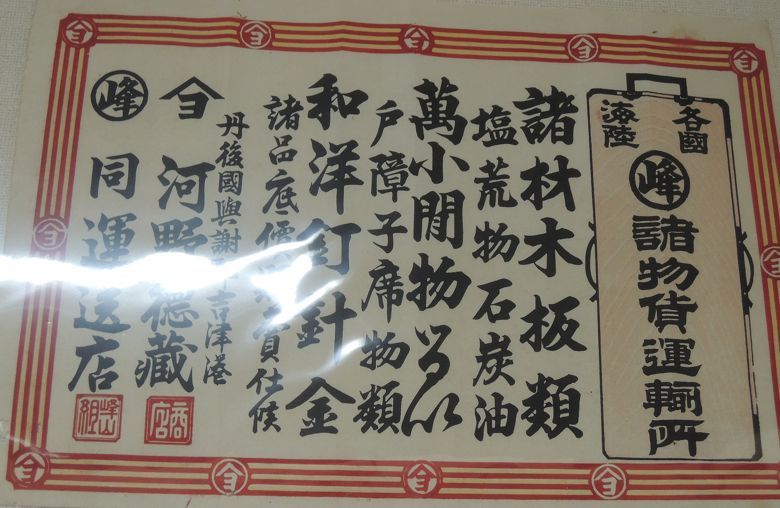 各國
海陸
峰
諸物貨運輸所
諸材木板類
塩荒物石炭油
萬小間物るい
戸障子席物類
和洋釘針金
諸品底價 賣仕候
丹後國與謝 吉津港
ヨ 河野德藏
峰 同運送店